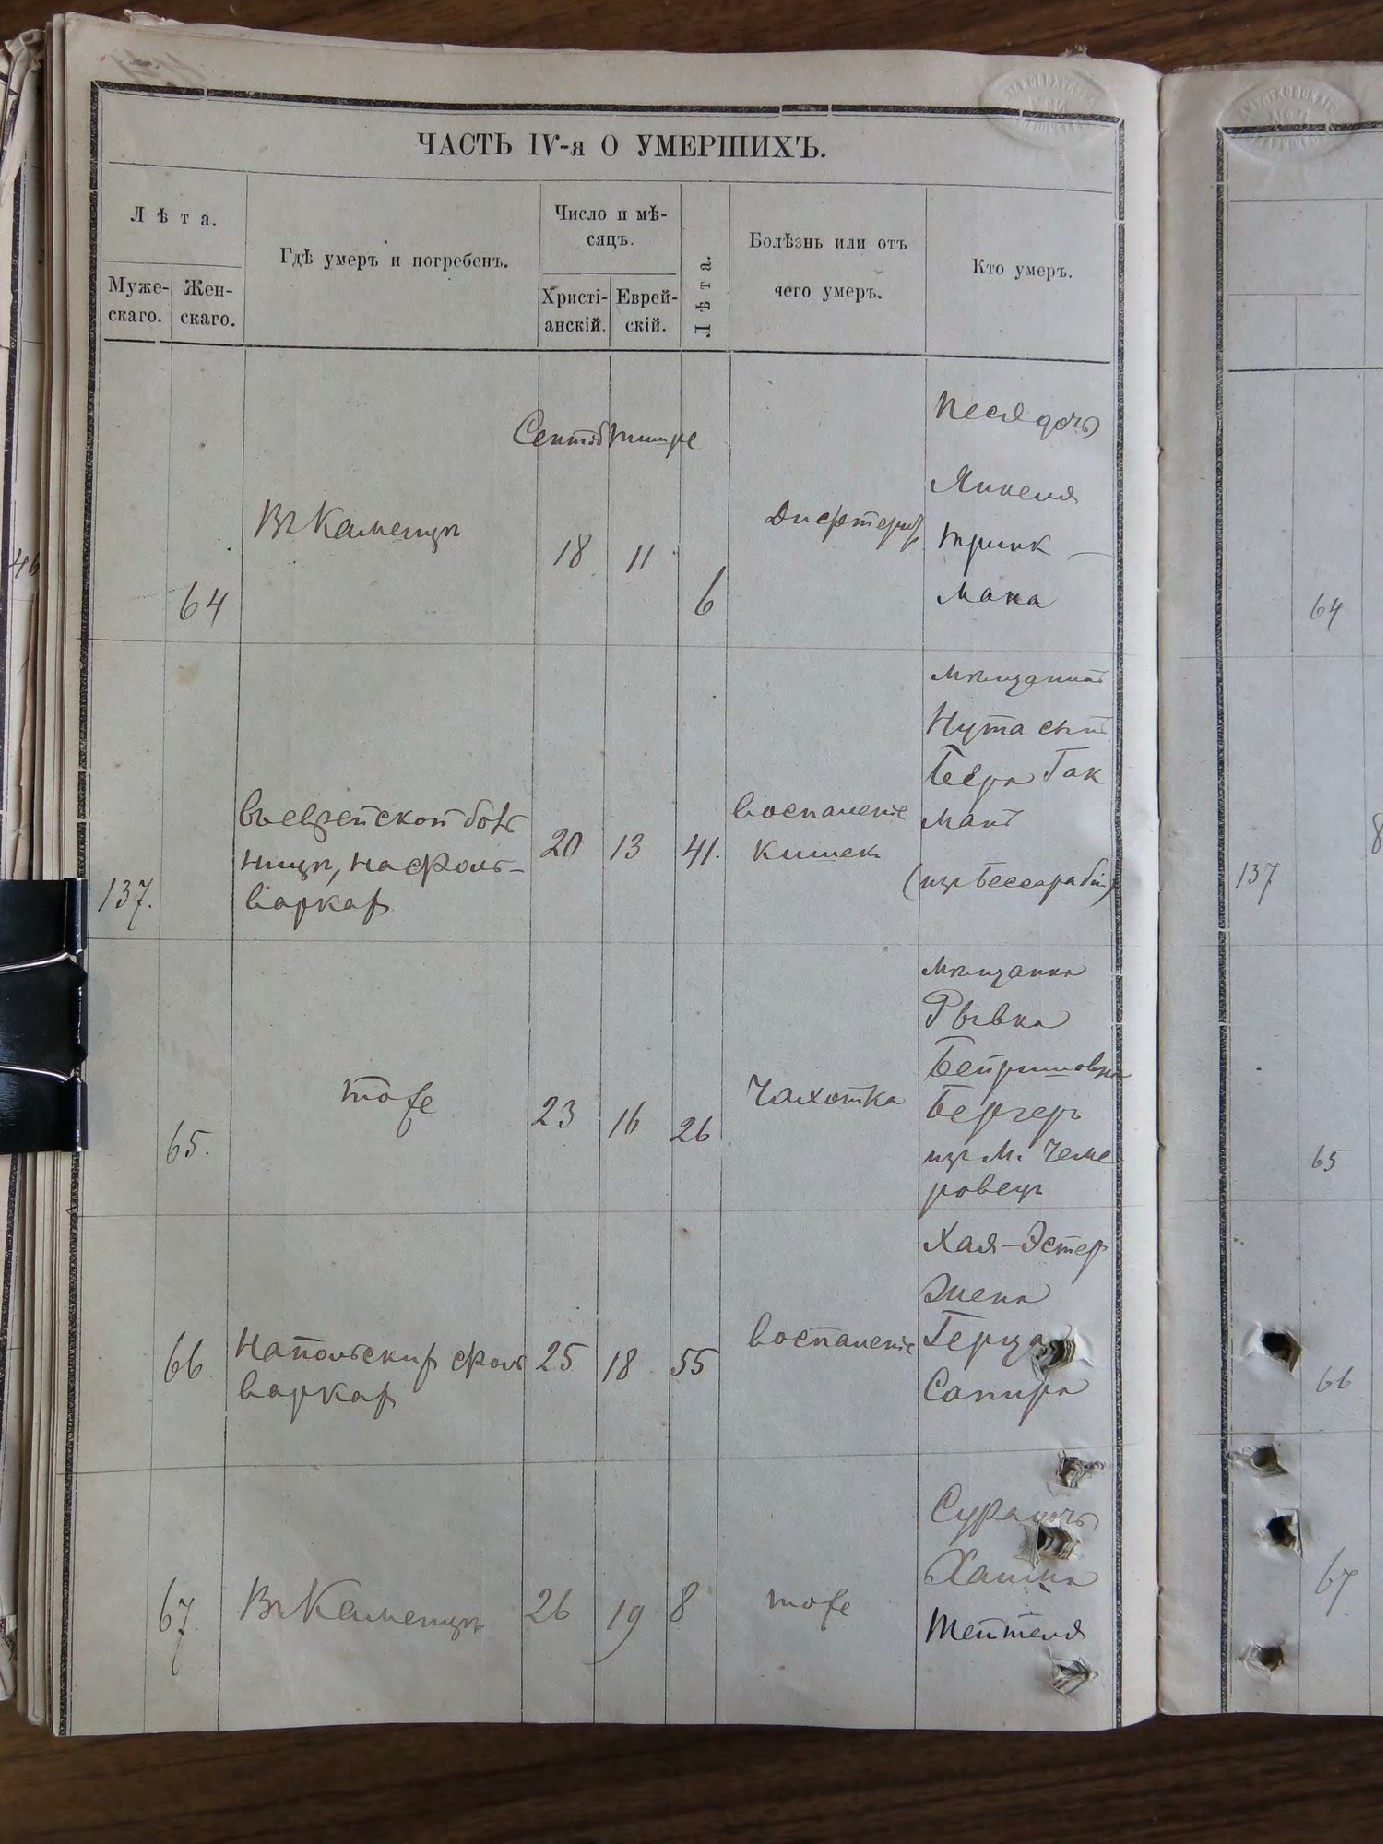 ЧАСТЬ IV-я О УМЕРШИХЪ.
Лѣта.
Муже-
скаго.
Жен-
скаго.
Гдѣ умеръ и погребенъ.
Число и мѣ-
сяцъ.
Христі-
анскій.
Еврей-
скій.
Лѣта.
Болѣзнь или отъ
чего умеръ.
Кто умеръ.
Сентяб Тишре
64
Въ Каменцѣ
18
11
6
Дифтеритъ
Песя дочь
Янкеля
Тринк-
мана
64
137.
въ еврейской боль
ницѣ, на фоль-
варкахъ
20
13
41.
воспаленіе
кишекъ
мѣщанинъ
Нута сынъ
Бера Гак
манъ
(изъ Бессарабіи)
137
8
65.
тоже
23
16
26
Чахотка
мѣщанка
Рывка
Бейришовна
Бергеръ
изъ м. Чеме
ровецъ
65
66
На польскихъ фоль
варкахъ
25
18
55
воспаленіе
Хая-Эстер
жена
Герца
Сапира
66
67.
Въ Каменцѣ
26
19
8
тоже
Сура дочь
Хаима
Тейтеля
67
46